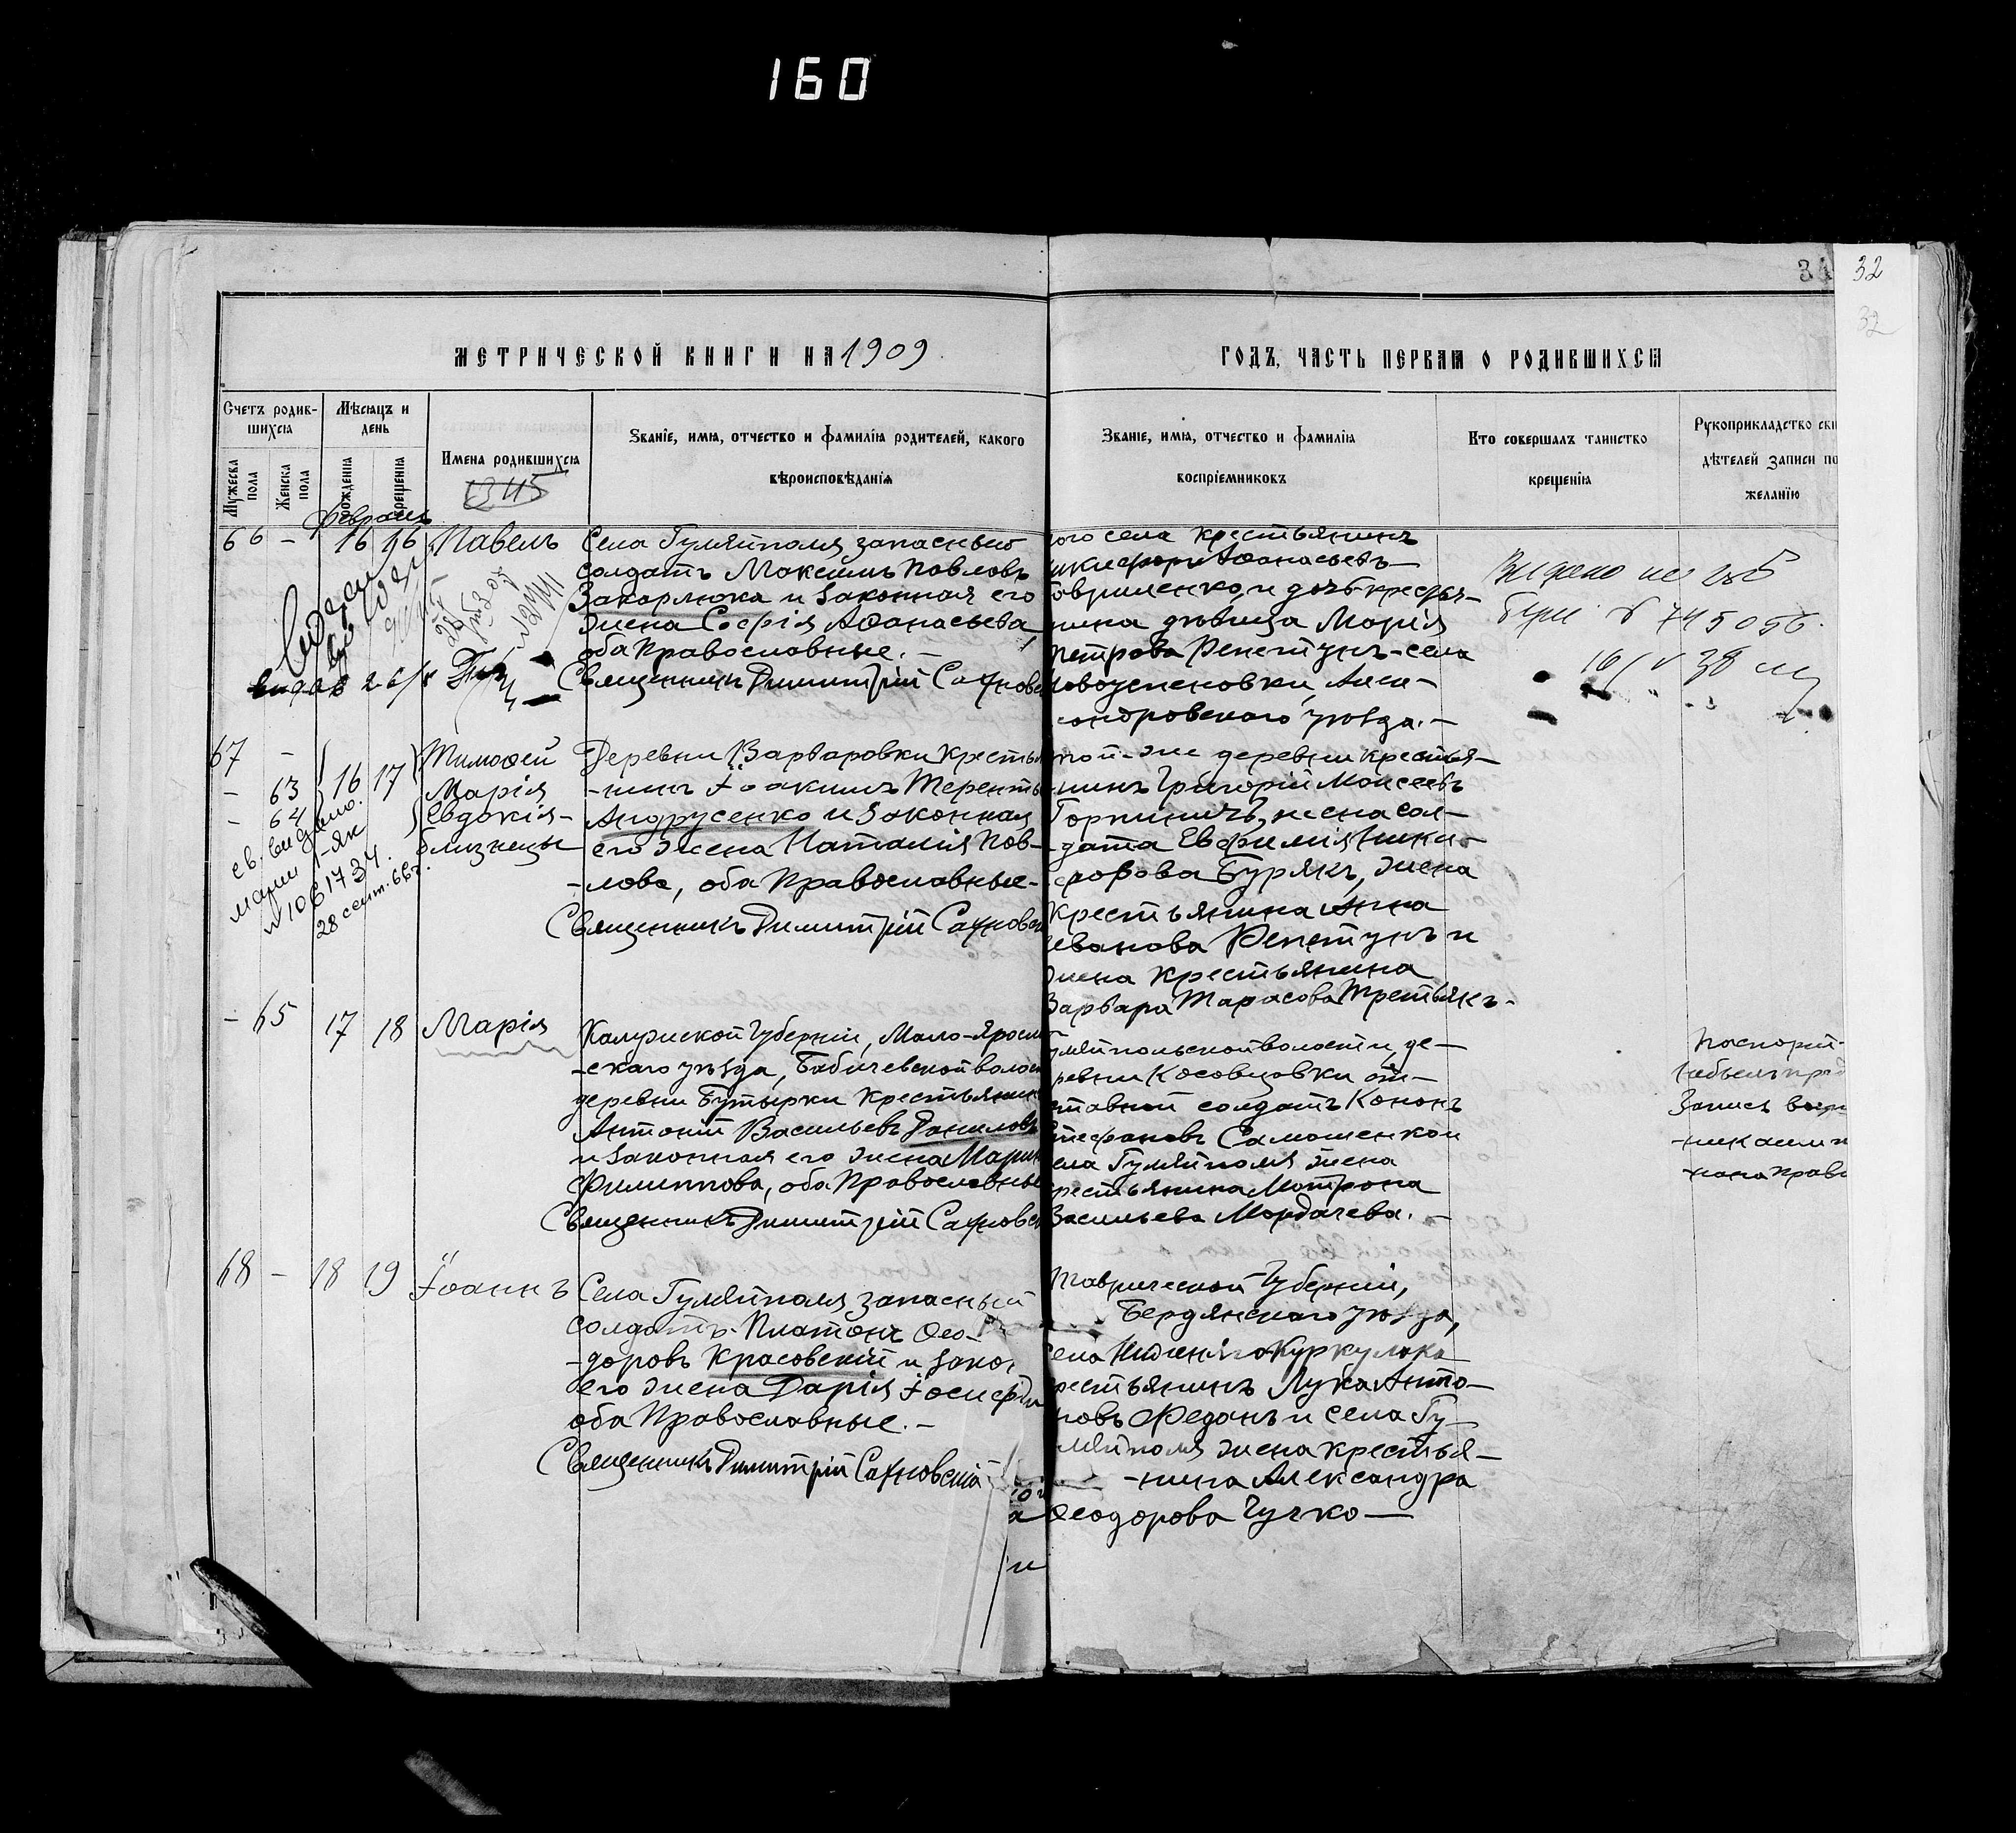 160
34
32
32
МЕТРИЧЕСКОЙ КНИГИ НА 1909
ГОДЪ, ЧАСТЬ ПЕРВАЯ О РОДИВШИХСЯ
Счетъ родив-
шихся
Мужеска
пола
Женска
пола
Мѣсяцъ и
день
рожденія
крещенія
Имена родившихся
Званіе, имя, отчество и фамилія родителей, какого
вѣроисповѣданія
Званіе, имя, отчество и фамилія
воспріемниковъ
Кто совершалъ таинство
крещенія
Рукоприкладство сви
дѣтелей записи по
желанію
Февраль
66 - 16 16 Павелъ
Села Гуляйполя запасный
солдатъ Максимъ Павловъ
Закарлюка и законная его
жена Софія Аѳанасьева,
оба Православные. -
Священникъ Димитрій Сахновс
ого села крестьянинъ
икифоръ Аѳанасьевъ
авриленко, и дочь крестья-
нина дѣвица Марія
Петрова Репетунъ - села
овоуспеновки, Алек-
сандровскаго уѣзда. -
67 -
- 63
- 64
16 17
Тимоѳей
Марія
Евдокія -
близнецы
св. выдано
Марии
N 1061734
28 сент. 66 г.
Деревни Варваровки крестья
-нинъ Іоакимъ Терентье
Андрусенко и законная
его жена Наталія Пав-
-лова, оба Православные -
Священникъ Димитрій Сахновск
той-же деревни крестья-
-нинъ Григорій Моисеевъ
Горпиничъ, жена сол-
-дата Евфимія Ники-
-форова Бурякъ, жена
крестьянина Анна
Иванова Репетунъ и
жена крестьянина
Варвара Тарасова Третьякъ -
- 65 17 18 Марія
Калужской Губерніи, Мало-Яросла
-скаго уѣзда, Бабичевской волос
деревни Бутырки крестьянинъ
Антоній Васильевъ Даниловъ
и законная его жена Марія
Филиппова, оба Православны
Священникъ Димитрій Сахновск
уляйпольской волости, де-
ревни Косовцовки от-
ставной солдатъ Кононъ
Стефановъ Самошенко и
ела Гуляйполя жена
рестьянина Матрона
Васильева Мордачева. -
68 - 18 19 Іоаннъ
Села Гуляйполя запасный
солдатъ Платонъ Ѳео-
-доровъ Красовскій и зако
его жена Дарія Іосифо
оба Православные. -
Священникъ Димитрій Сахновскій
Таврической Губерніи,
Бердянскаго уѣзда,
ела Нижняго Куркулака
рестьянинъ Лука Анто-
новъ Феданъ и села Гу-
ляйполя жена крестья-
-нина Александра
Ѳеодорова Гучко